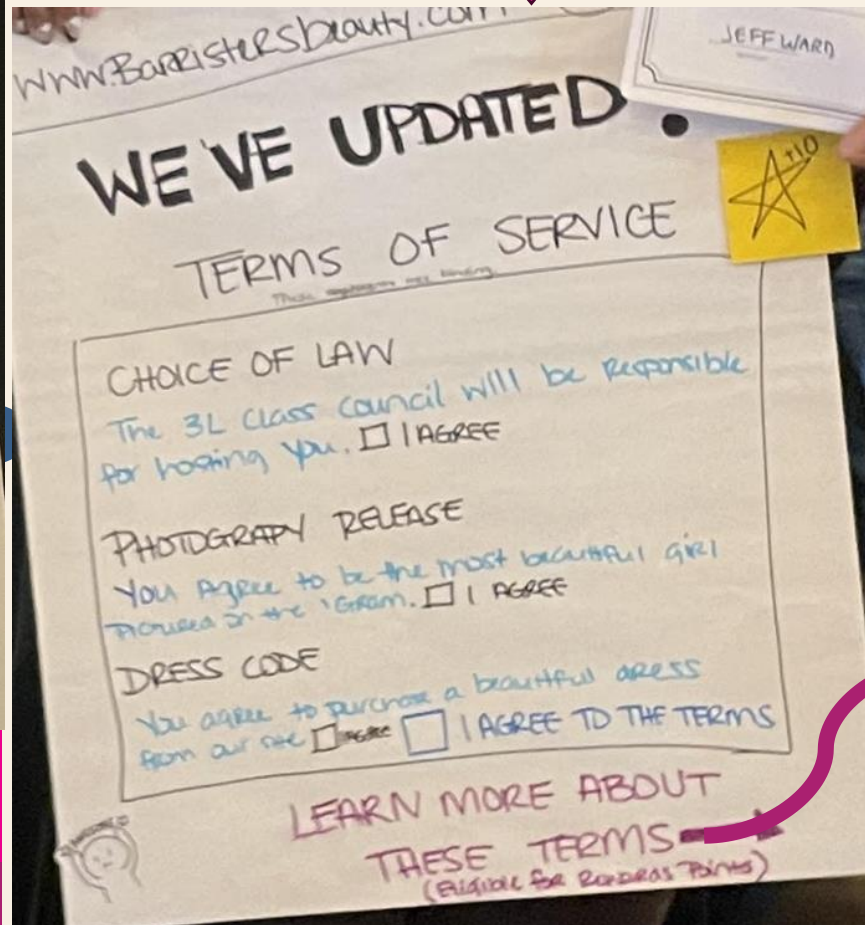 www.Barristersbeauty.com
JEFF WARD
WE'VE UPDATED!
+10
TERMS OF SERVICE
These are binding
CHOICE OF LAW
The 3L Class Council will be Responsible
for hosting you. I AGREE
PHOTOGRAPY RELEASE
You Agree to be the most beautiful girl
Pictured on the 'Gram. I AGREE
DRESS CODE
You agree to purchase a beautiful dress
from our site I AGREE I AGREE TO THE TERMS
LEARN MORE ABOUT
THESE TERMS
(Eligible for Rewards Points)